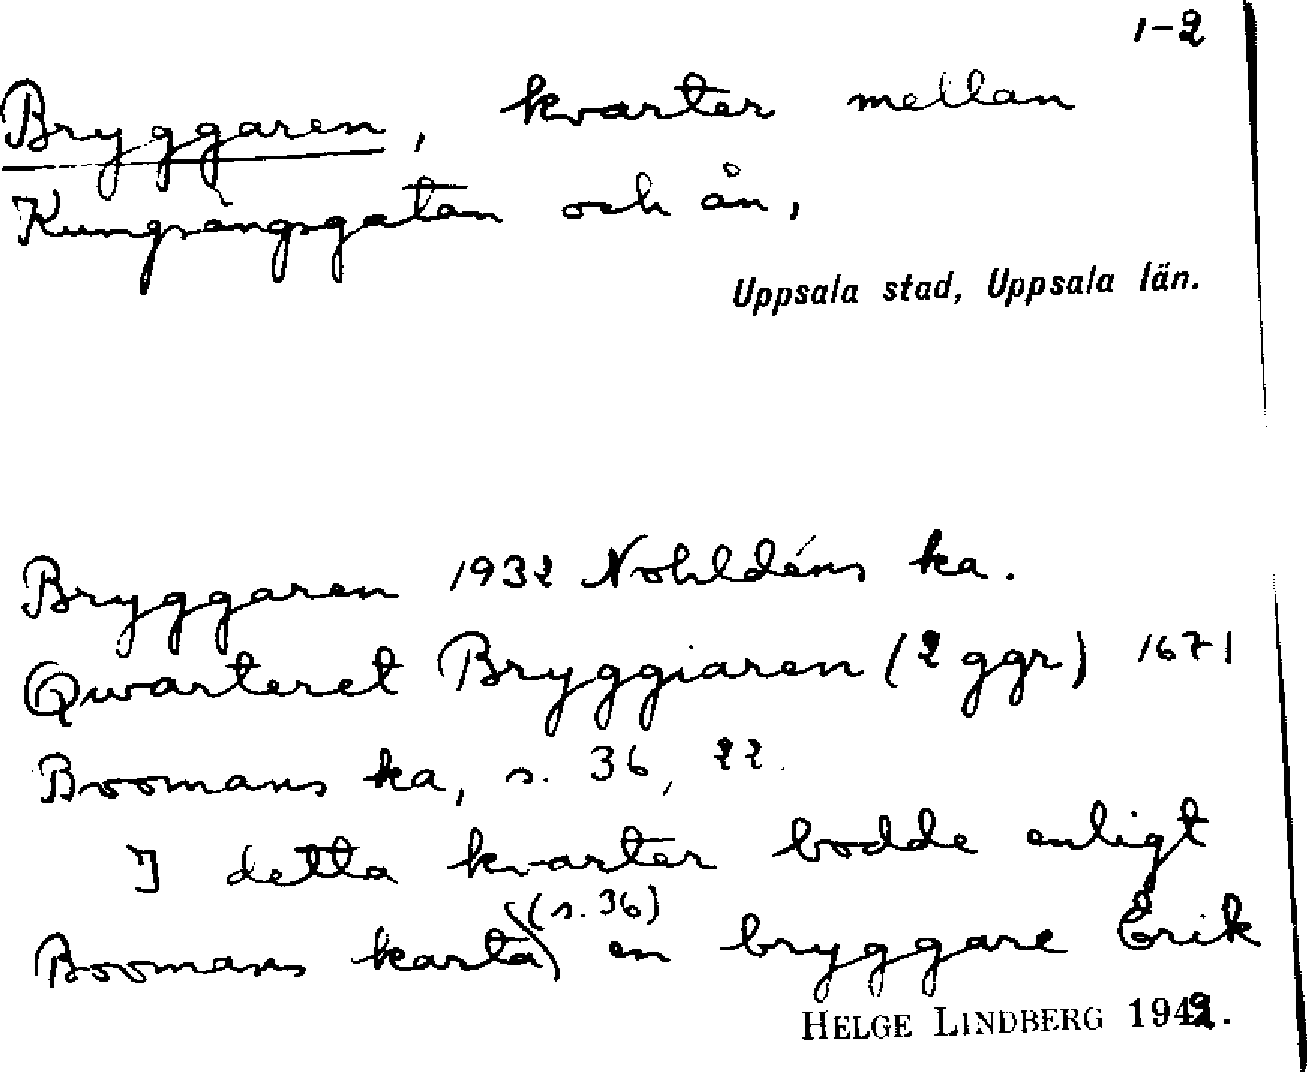 1-2
Bryggaren, kvarter mellan
Kungsängsgatan och ån,
Uppsala stad, Uppsala län.
Bryggaren 1932 Nohldéns ka.
Qwarteret Bryggiaren (2 ggr) 1671
Boomans ka, s. 36, 22.
I detta kvarter bodde enligt
Boomans karta (s. 36) en bryggare Erik
HELGE LINDBERG 1942.